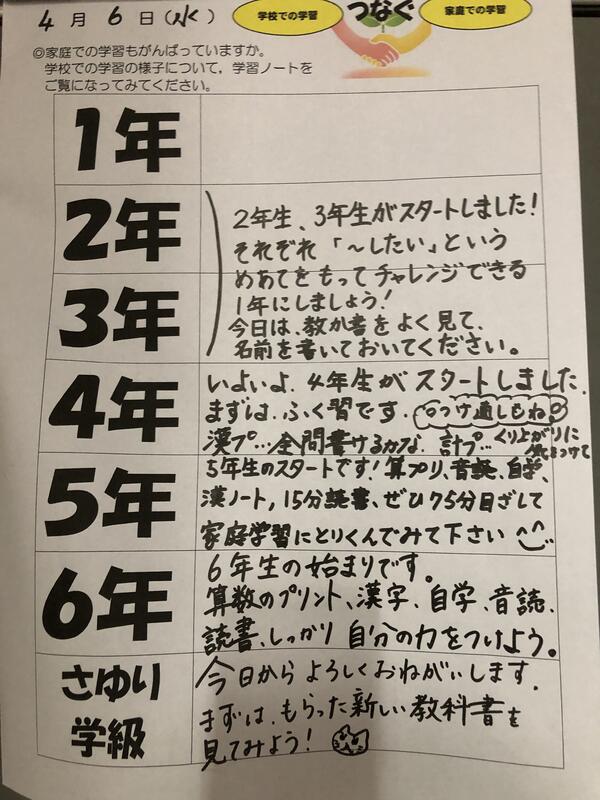 4月6日(水)
学校での学習
つなぐ
家庭での学習
◎家庭での学習もがんばっていますか。
学校での学習の様子について,学習ノートを
ご覧になってみてください。
1年
2年
3年
2年生、3年生がスタートしました!
それぞれ「~したい」という
めあてをもってチャレンジできる
1年にしましょう!
今日は、教か書をよく見て、
名前を書いておいてください。
4年
いよいよ、4年生がスタートしました.
まずは、ふく習です.
つけ通しもね。
漢プ…全問書けるかな. 計プ…くり上がりに
気をつけて
5年
5年生のスタートです!算プリ、音読、自学、
漢ノート,15分読書、ぜひ75分目ざして
家庭学習にとりくんでみて下さい
6年
6年生の始まりです。
算数のプリント、漢字、自学、音読、
読書、しっかり自分の力をつけよう。
さゆり
学級
今日からよろしくおねがいします.
まずは、もらった新しい教科書を
見てみよう!